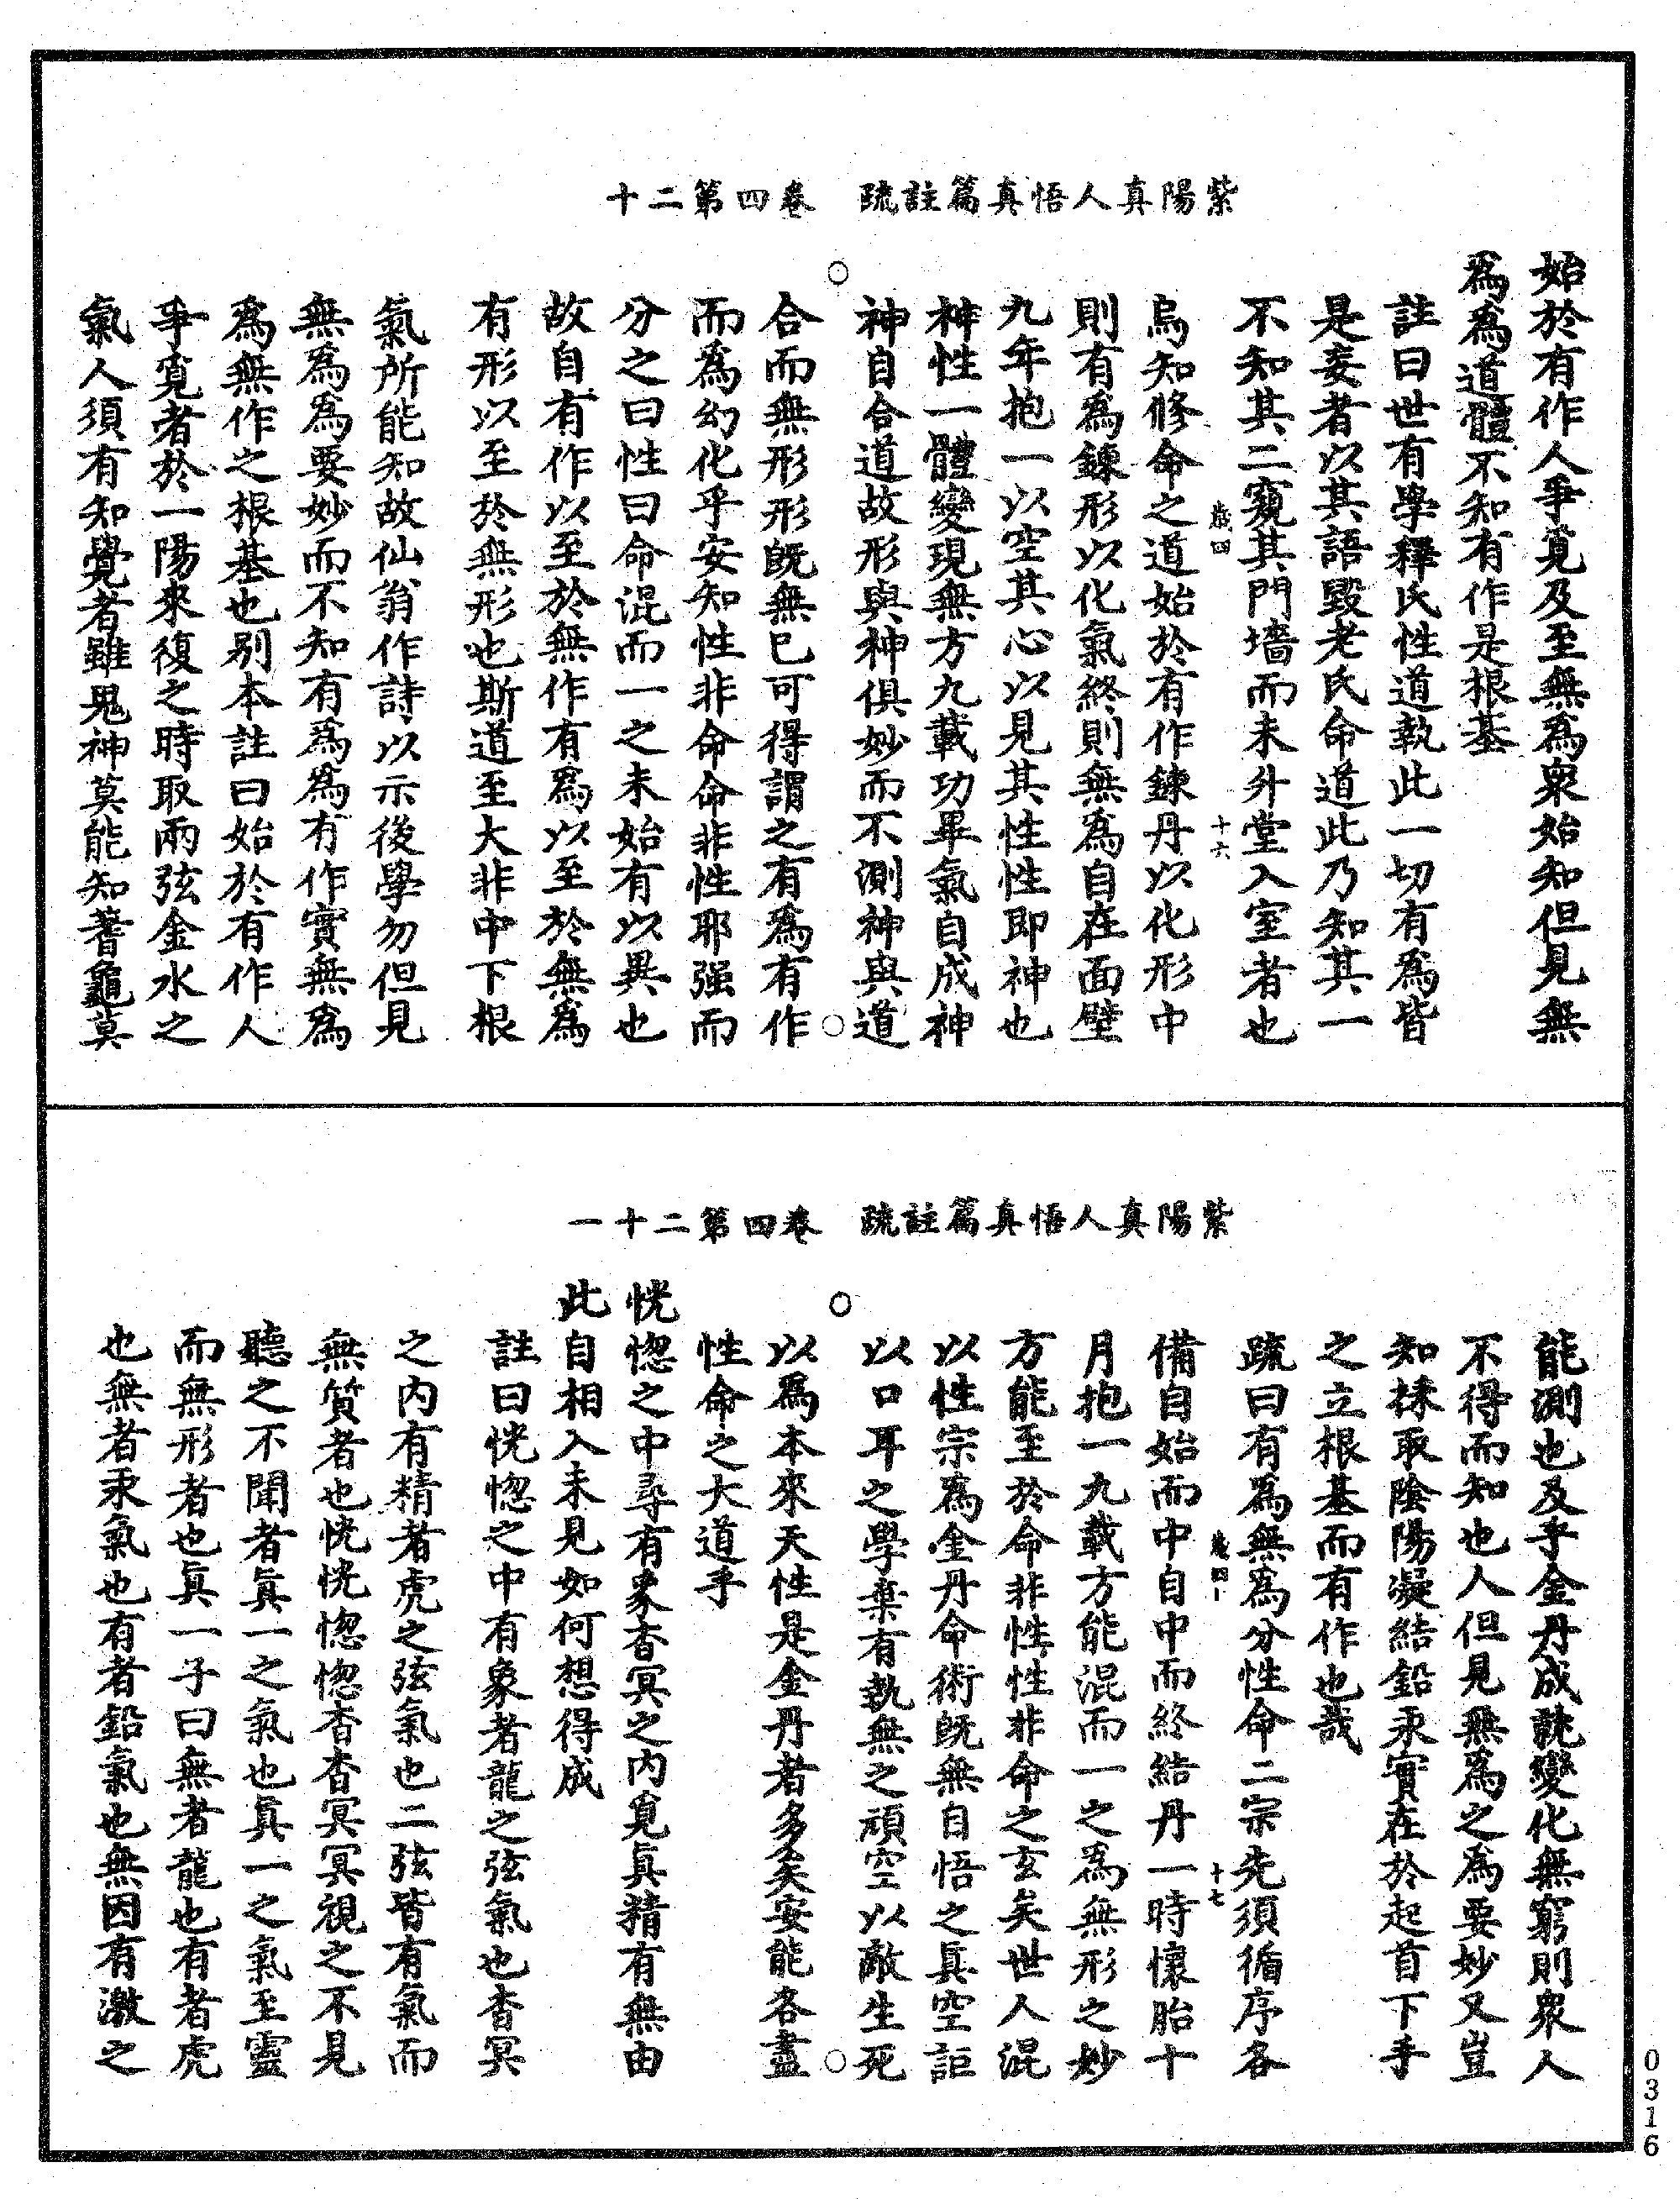 紫陽真人悟真篇註疏　卷四第二十
始於有作人爭覓及至無爲衆始知但見無
爲爲道體不知有作是根基
註曰世有學釋氏性道執此一切有爲皆
是妄者以其語毀老氏命道此乃知其一
不知其二窺其門墻而未升堂入室者也
歲四　十六
烏知修命之道始於有作鍊丹以化形中
則有爲鍊形以化氣終則無爲自在面壁
九年抱一以空其心以見其性性即神也
神性一體變現無方九載功畢氣自成神
神自合道故形與神俱妙而不測神與道
合而無形形既無已可得謂之有爲有作
而爲幻化乎安知性非命命非性耶强而
分之曰性曰命混而一之未始有以異也
故自有作以至於無作有爲以至於無爲
有形以至於無形也斯道至大非中下根
氣所能知故仙翁作詩以示後學勿但見
無爲爲要妙而不知有爲爲有作實無爲
爲無作之根基也别本註曰始於有作人
爭覓者於一陽來復之時取兩弦金水之
氣人須有知覺者雖鬼神莫能知蓍龜莫
紫陽真人悟真篇註疏　卷四第二十一
能測也及乎金丹成就變化無窮則衆人
不得而知也人但見無爲之爲要妙又豈
知採取陰陽凝結鉛汞實在於起首下手
之立根基而有作也哉
疏曰有爲無爲分性命二宗先須循序各
歲四　十七
備自始而中自中而終結丹一時懷胎十
月抱一九載方能混而一之爲無形之妙
方能至於命非性性非命之玄矣世人混
以性宗爲金丹命術既無自悟之真空詎
以口耳之學棄有執無之頑空以敵生死
以爲本來天性是金丹者多矣安能各盡
性命之大道乎
恍惚之中尋有象杳冥之内覓真精有無由
此自相入未見如何想得成
註曰恍惚之中有象者龍之弦氣也杳冥
之内有精者虎之弦氣也二弦皆有氣而
無質者也恍恍惚惚杳杳冥冥視之不見
聽之不聞者真一之氣也真一之氣至靈
而無形者也真一子曰無者龍也有者虎
也無者汞氣也有者鉛氣也無因有激之
0316